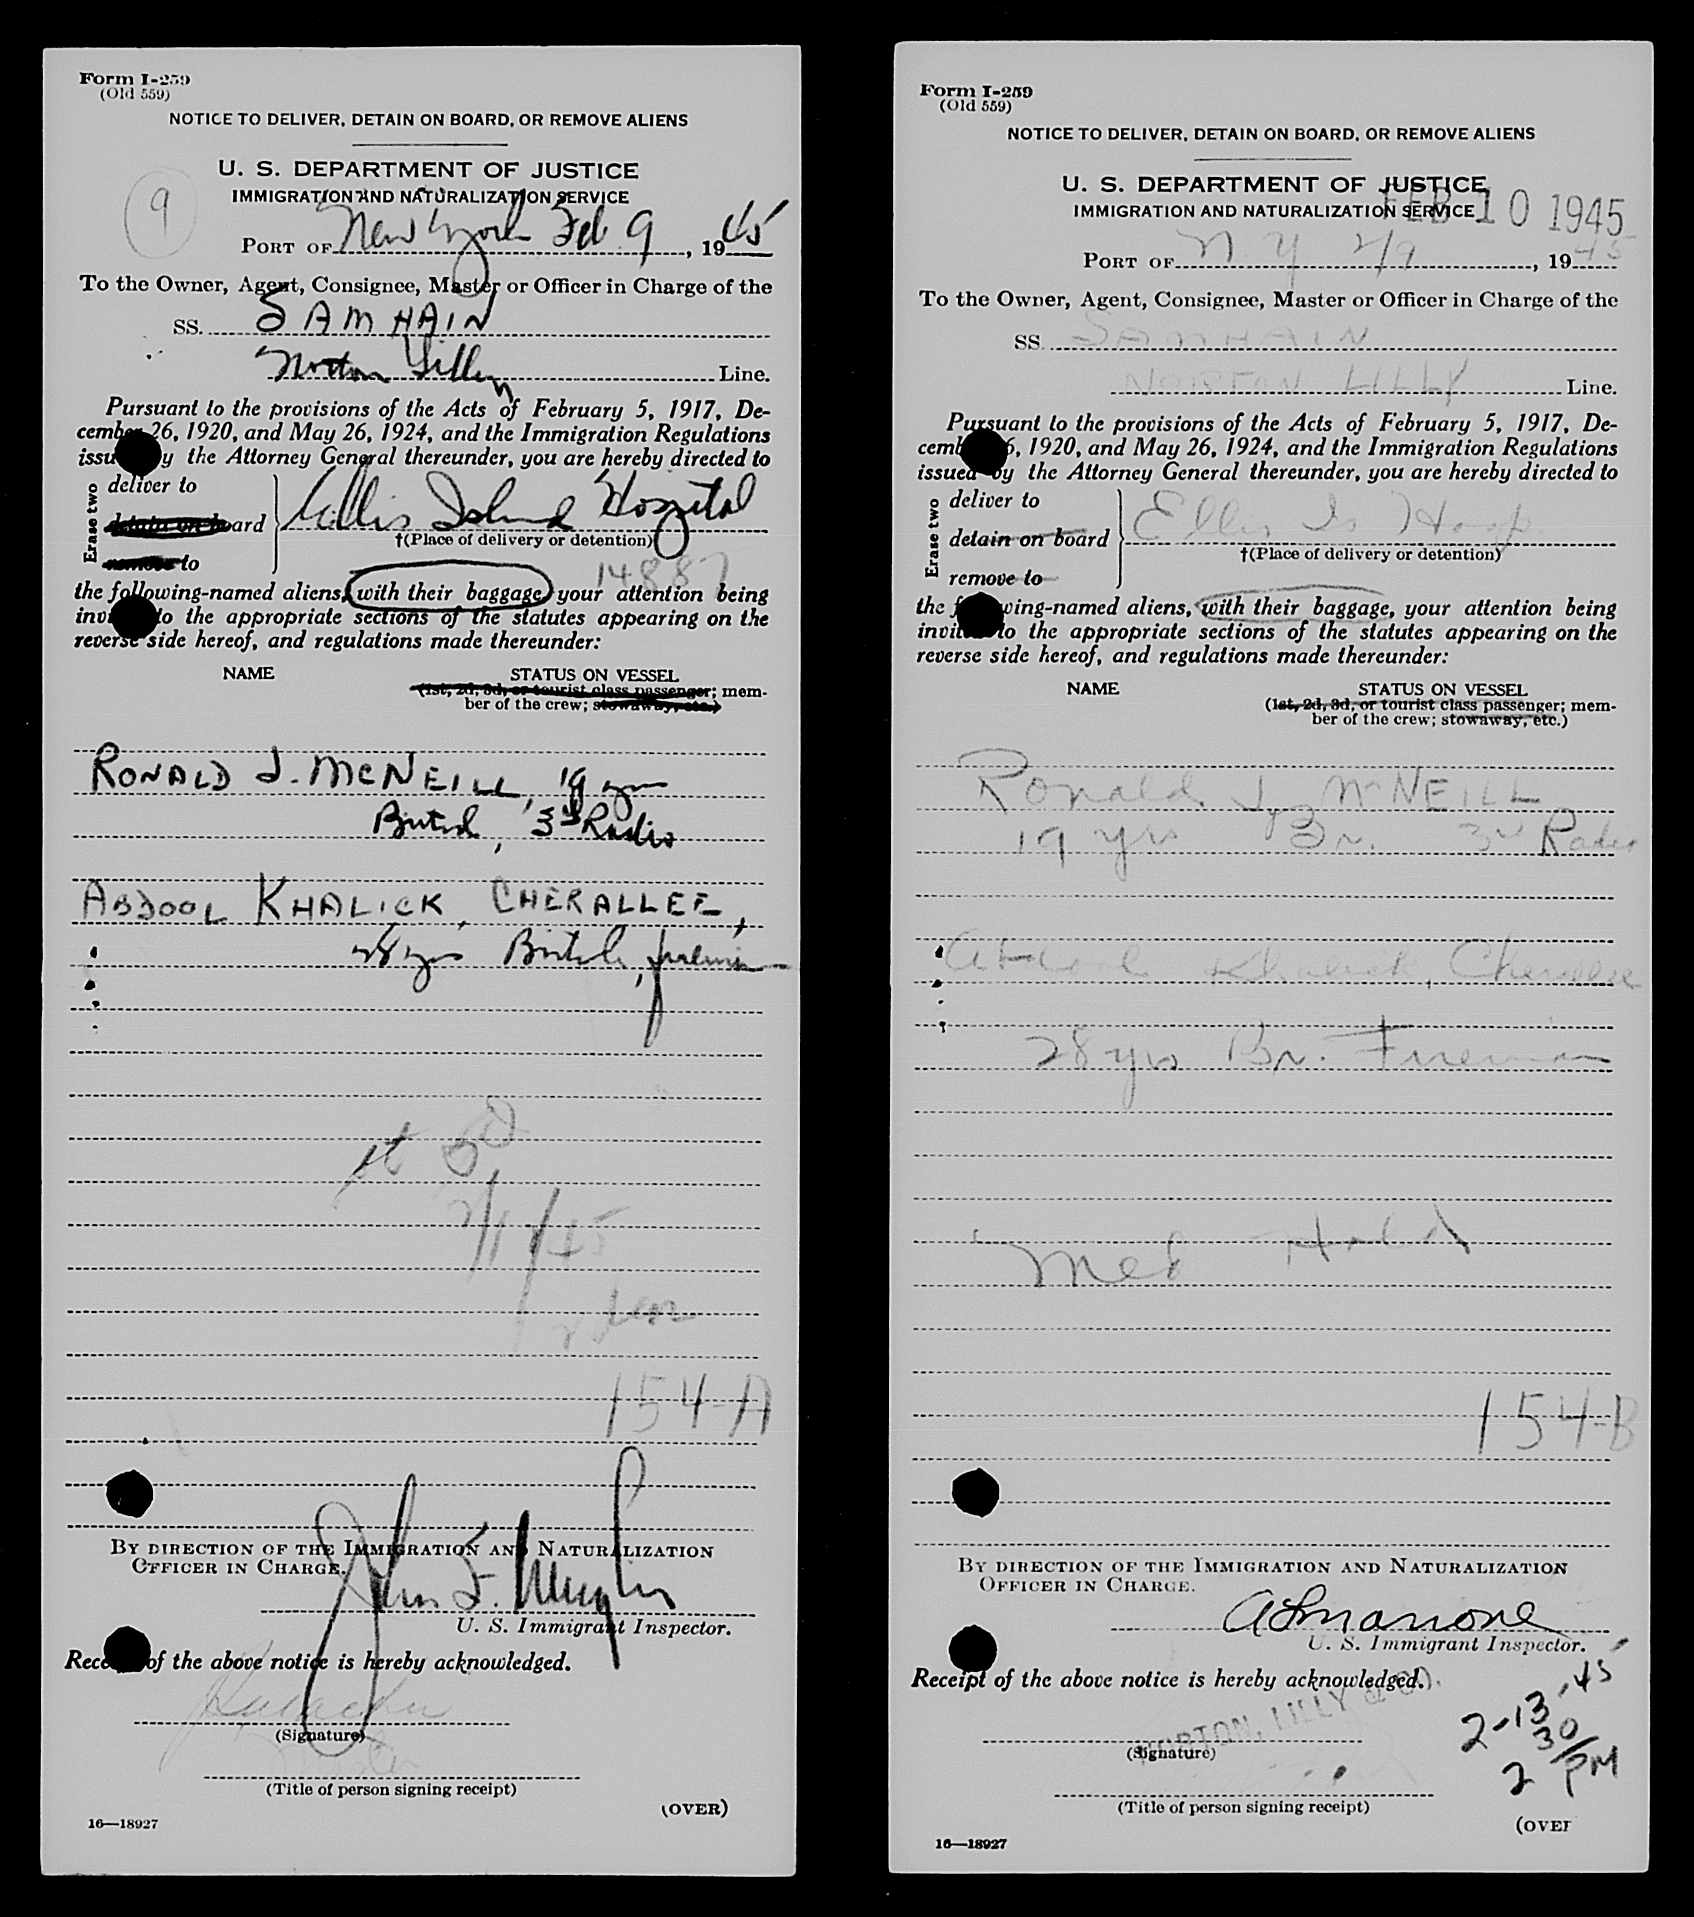 Form I-259
(Old 559)
NOTICE TO DELIVER, DETAIN ON BOARD, OR REMOVE ALIENS
U. S. DEPARTMENT OF JUSTICE
IMMIGRATION AND NATURALIZATION SERVICE
9
PORT OF New York Feb 9, 1945
To the Owner, Agent, Consignee, Master or Officer in Charge of the
SS. SAMHAIN
Norton Lilly Line.
Pursuant to the provisions of the Acts of February 5, 1917, De-
cember 26, 1920, and May 26, 1924, and the Immigration Regulations
issu y the Attorney General thereunder, you are hereby directed to
Erase two
deliver to
detain on board
remove to
Ellis Island Hospital
†(Place of delivery or detention)
14887
the following-named aliens, with their baggage, your attention being
invi to the appropriate sections of the statutes appearing on the
reverse side hereof, and regulations made thereunder:
NAME STATUS ON VESSEL
(1st, 2d, 3d, or tourist class passenger; mem-
ber of the crew; stowaway, etc.)
RONALD J. MCNEILL, 19 yrs
British, 3rd Radio
ABDOOL KHALICK, CHERALLEE,
28 yrs British, fireman
154-A
BY DIRECTION OF THE IMMIGRATION AND NATURALIZATION
OFFICER IN CHARGE.
U. S. Immigrant Inspector.
Rece of the above notice is hereby acknowledged.
(Signature)
(Title of person signing receipt)
(OVER)
16—18927
Form I-259
(Old 559)
NOTICE TO DELIVER, DETAIN ON BOARD, OR REMOVE ALIENS
U. S. DEPARTMENT OF JUSTICE
FEB 10 1945
IMMIGRATION AND NATURALIZATION SERVICE
PORT OF N Y 2/9, 1945
To the Owner, Agent, Consignee, Master or Officer in Charge of the
SS. SAMHAIN
NORTON LILLY Line.
Pursuant to the provisions of the Acts of February 5, 1917, De-
cemb 6, 1920, and May 26, 1924, and the Immigration Regulations
issued by the Attorney General thereunder, you are hereby directed to
Erase two
deliver to
detain on board
remove to
Ellis Is Hosp
†(Place of delivery or detention)
the f wing-named aliens, with their baggage, your attention being
invite to the appropriate sections of the statutes appearing on the
reverse side hereof, and regulations made thereunder:
NAME STATUS ON VESSEL
(1st, 2d, 3d, or tourist class passenger; mem-
ber of the crew; stowaway, etc.)
Ronald J McNEILL
19 yrs Br. 3rd Radio
Abdool Khalick, Cherallee
28 yrs Br. Fireman
Med Hold
154-B
BY DIRECTION OF THE IMMIGRATION AND NATURALIZATION
OFFICER IN CHARGE.
U. S. Immigrant Inspector.
Receipt of the above notice is hereby acknowledged.
NORTON, LILLY & CO.
(Signature)
2-13-45
2 30/PM
(Title of person signing receipt)
(OVER
16—18927